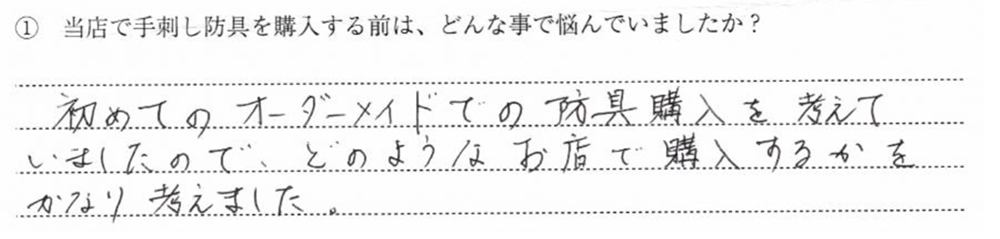 ① 当店で手刺し防具を購入する前は、どんな事で悩んでいましたか？
初めてのオーダーメイドでの防具購入を考えて
いましたので、どのようなお店で購入するかを
かなり考えました。